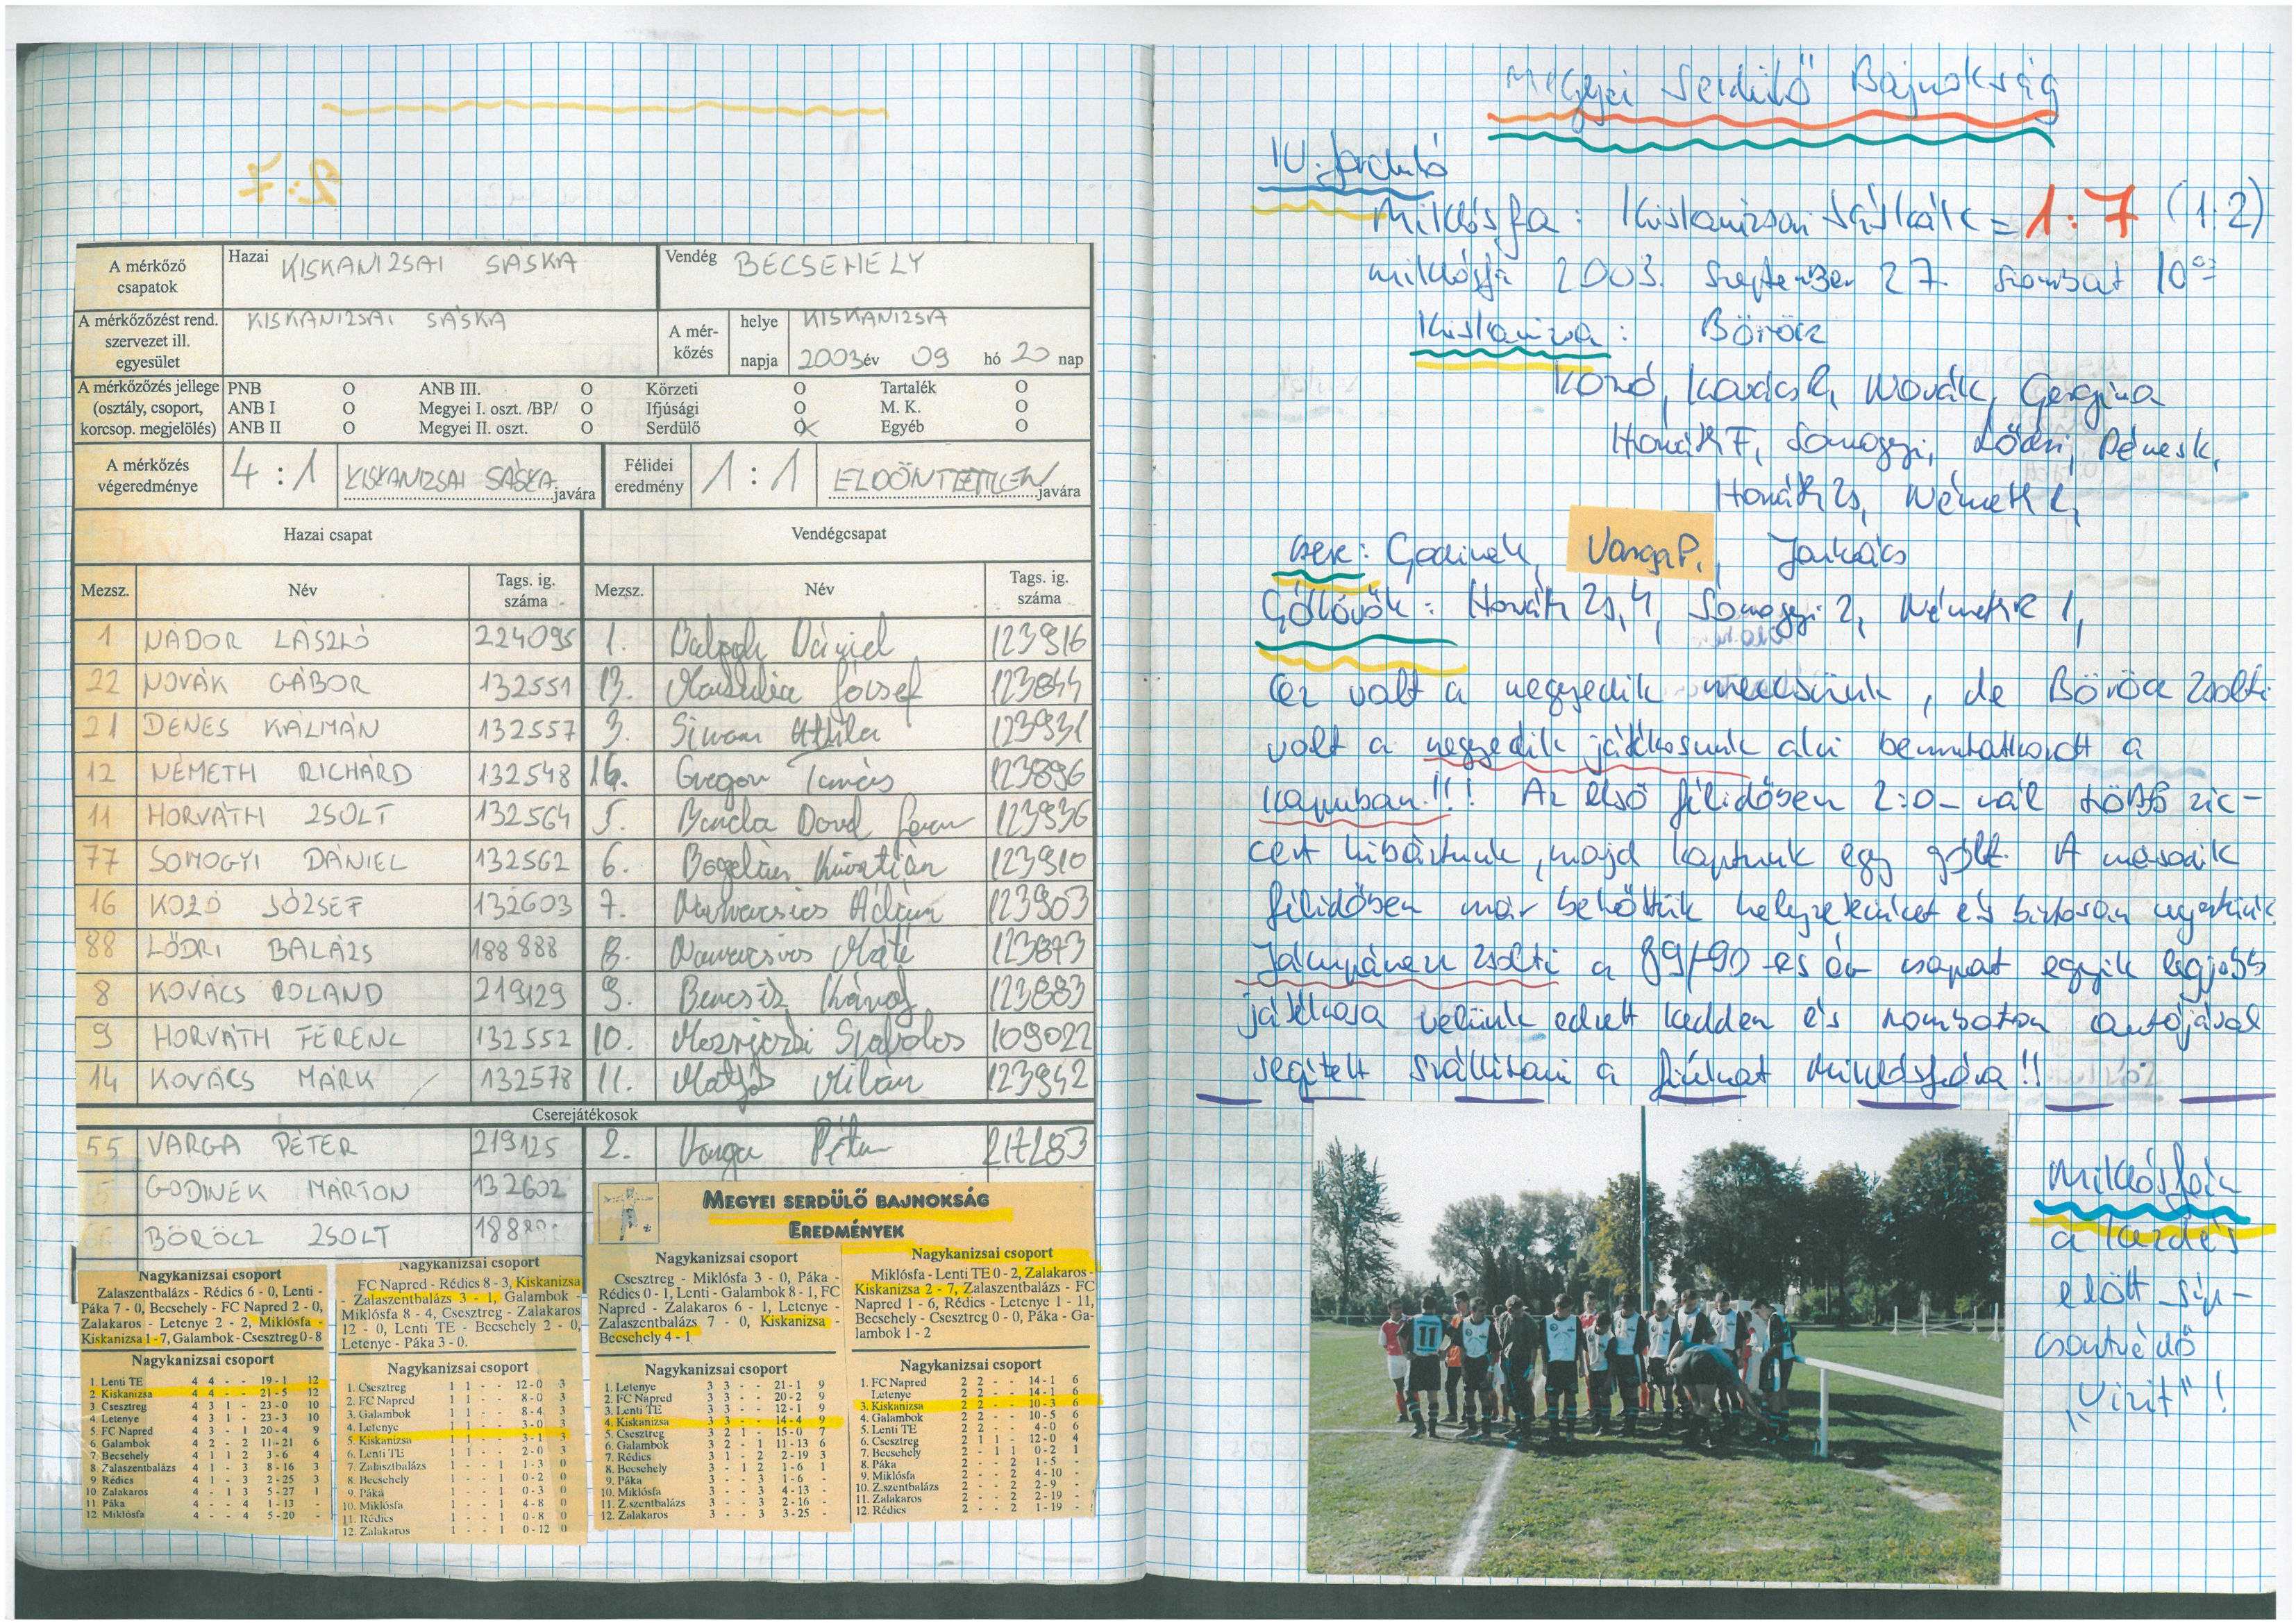 A mérkőző csapatok
Hazai KISKANIZSAI SÁSKA
Vendég BECSEHELY
A mérkőzést rend. szervezet ill. egyesület
KISKANIZSAI SÁSKA
A mérkőzés
helye KISKANIZSA
napja 2003 év 09 hó 20 nap
A mérkőzés jellege (osztály, csoport, korcsop. megjelölés)
PNB O ANB III. O Körzeti O Tartalék O
ANB I O Megyei I. oszt. /BP/ O Ifjúsági O M. K. O
ANB II O Megyei II. oszt. O Serdülő X Egyéb O
A mérkőzés végeredménye 4 : 1 KISKANIZSAI SÁSKA javára
Félidei eredmény 1 : 1 ELDÖNTETLEN javára
Hazai csapat Vendégcsapat
Mezsz. Név Tags. ig. száma Mezsz. Név Tags. ig. száma
1 NÁDOR LÁSZLÓ 224095 1. Dániel 123916
22 NOVÁK GÁBOR 132551 13. József 123844
21 DÉNES KÁLMÁN 132557 3. Simon Attila 123931
12 NÉMETH RICHÁRD 132548 16. Gregor Tamás 123896
11 HORVÁTH ZSOLT 132564 5. 123936
77 SOMOGYI DÁNIEL 132562 6. Krisztián 123910
16 KOZÓ JÓZSEF 132603 7. Ádám 123903
88 LŐDRI BALÁZS 188888 8. Máté 123873
8 KOVÁCS ROLAND 219129 9. Károly 123883
9 HORVÁTH FERENC 132552 10. Szabolcs 109022
14 KOVÁCS MÁRK 132578 11. Milán 123942
Cserejátékosok
55 VARGA PÉTER 219125 2. Varga Péter 217283
5 GODINEK MÁRTON 132602
66 BÖRÖCZ ZSOLT
MEGYEI SERDÜLŐ BAJNOKSÁG
EREDMÉNYEK
Nagykanizsai csoport
Zalaszentbalázs - Rédics 6 - 0, Lenti -
Páka 7 - 0, Becsehely - FC Napred 2 - 0,
Zalakaros - Letenye 2 - 2, Miklósfa -
Kiskanizsa 1 - 7, Galambok - Csesztreg 0 - 8
Nagykanizsai csoport
1. Lenti TE 4 4 - - 19 - 1 12
2. Kiskanizsa 4 4 - - 21 - 5 12
3. Csesztreg 4 3 1 - 23 - 0 10
4. Letenye 4 3 1 - 23 - 3 10
5. FC Napred 4 3 - 1 20 - 4 9
6. Galambok 4 2 - 2 11 - 21 6
7. Becsehely 4 1 1 2 3 - 6 4
8. Zalaszentbalázs 4 1 - 3 8 - 16 3
9. Rédics 4 1 - 3 2 - 25 3
10. Zalakaros 4 - 1 3 5 - 27 1
11. Páka 4 - - 4 1 - 13 -
12. Miklósfa 4 - - 4 5 - 20 -
Nagykanizsai csoport
FC Napred - Rédics 8 - 3, Kiskanizsa
- Zalaszentbalázs 3 - 1, Galambok -
Miklósfa 8 - 4, Csesztreg - Zalakaros
12 - 0, Lenti TE - Becsehely 2 - 0,
Letenye - Páka 3 - 0.
Nagykanizsai csoport
1. Csesztreg 1 1 - - 12 - 0 3
2. FC Napred 1 1 - - 8 - 0 3
3. Galambok 1 1 - - 8 - 4 3
4. Letenye 1 1 - - 3 - 0 3
5. Kiskanizsa 1 1 - - 3 - 1 3
6. Lenti TE 1 1 - - 2 - 0 3
7. Zalasztbalázs 1 - - 1 1 - 3 0
8. Becsehely 1 - - 1 0 - 2 0
9. Páka 1 - - 1 0 - 3 0
10. Miklósfa 1 - - 1 4 - 8 0
11. Rédics 1 - - 1 0 - 8 0
12. Zalakaros 1 - - 1 0 - 12 0
Nagykanizsai csoport
Csesztreg - Miklósfa 3 - 0, Páka -
Rédics 0 - 1, Lenti - Galambok 8 - 1, FC
Napred - Zalakaros 6 - 1, Letenye -
Zalaszentbalázs 7 - 0, Kiskanizsa -
Becsehely 4 - 1
Nagykanizsai csoport
1. Letenye 3 3 - - 21 - 1 9
2. FC Napred 3 3 - - 20 - 2 9
3. Lenti TE 3 3 - - 12 - 1 9
4. Kiskanizsa 3 3 - - 14 - 4 9
5. Csesztreg 3 2 1 - 15 - 0 7
6. Galambok 3 2 - 1 11 - 13 6
7. Rédics 3 1 - 2 2 - 19 3
8. Becsehely 3 - 1 2 1 - 6 1
9. Páka 3 - - 3 1 - 6 -
10. Miklósfa 3 - - 3 4 - 13 -
11. Z.szentbalázs 3 - - 3 2 - 16 -
12. Zalakaros 3 - - 3 3 - 25 -
Nagykanizsai csoport
Miklósfa - Lenti TE 0 - 2, Zalakaros -
Kiskanizsa 2 - 7, Zalaszentbalázs - FC
Napred 1 - 6, Rédics - Letenye 1 - 11,
Becsehely - Csesztreg 0 - 0, Páka - Ga-
lambok 1 - 2
Nagykanizsai csoport
1. FC Napred 2 2 - - 14 - 1 6
Letenye 2 2 - - 14 - 1 6
3. Kiskanizsa 2 2 - - 10 - 3 6
4. Galambok 2 2 - - 10 - 5 6
5. Lenti TE 2 2 - - 4 - 0 6
6. Csesztreg 2 1 1 - 12 - 0 4
7. Becsehely 2 - 1 1 0 - 2 1
8. Páka 2 - - 2 1 - 5 -
9. Miklósfa 2 - - 2 4 - 10 -
10. Z.szentbalázs 2 - - 2 2 - 9 -
11. Zalakaros 2 - - 2 2 - 19 -
12. Rédics 2 - - 2 1 - 19 -
Megyei Serdülő Bajnokság
IV. forduló
Miklósfa : Kiskanizsai Sáskák = 1:7 (1:2)
Miklósfa 2003. szeptember 27. szombat 10⁰⁰
Kiskanizsa : Böröcz
Kozó, Kovács R, Novák, Gergina
Horváth F, Somogyi, Lődri, Dénes K,
Horváth Zs, Németh R,
csere: Godinek, Varga P., Jankács
Góllövők: Horváth Zs, 4, Somogyi 2, Németh R 1,
Ez volt a negyedik meccsünk, de Böröcz Zsolti
volt a negyedik játékosunk aki bemutatkozott a
kapuban!!! Az első félidőben 2:0-nál több zic-
cert hibáztunk, majd kaptunk egy gólt. A második
félidőben már belőttük helyzeteinket és biztosan nyertünk.
Zsolti a 89/90-es év csapat egyik legjobb
játékosa velünk edzett kedden és szombaton autójával
segített szállítani a fiúkat Miklósfára!!
Miklósfán
a kezdés
előtt síp-
csontvédő
"Vizit"!
11